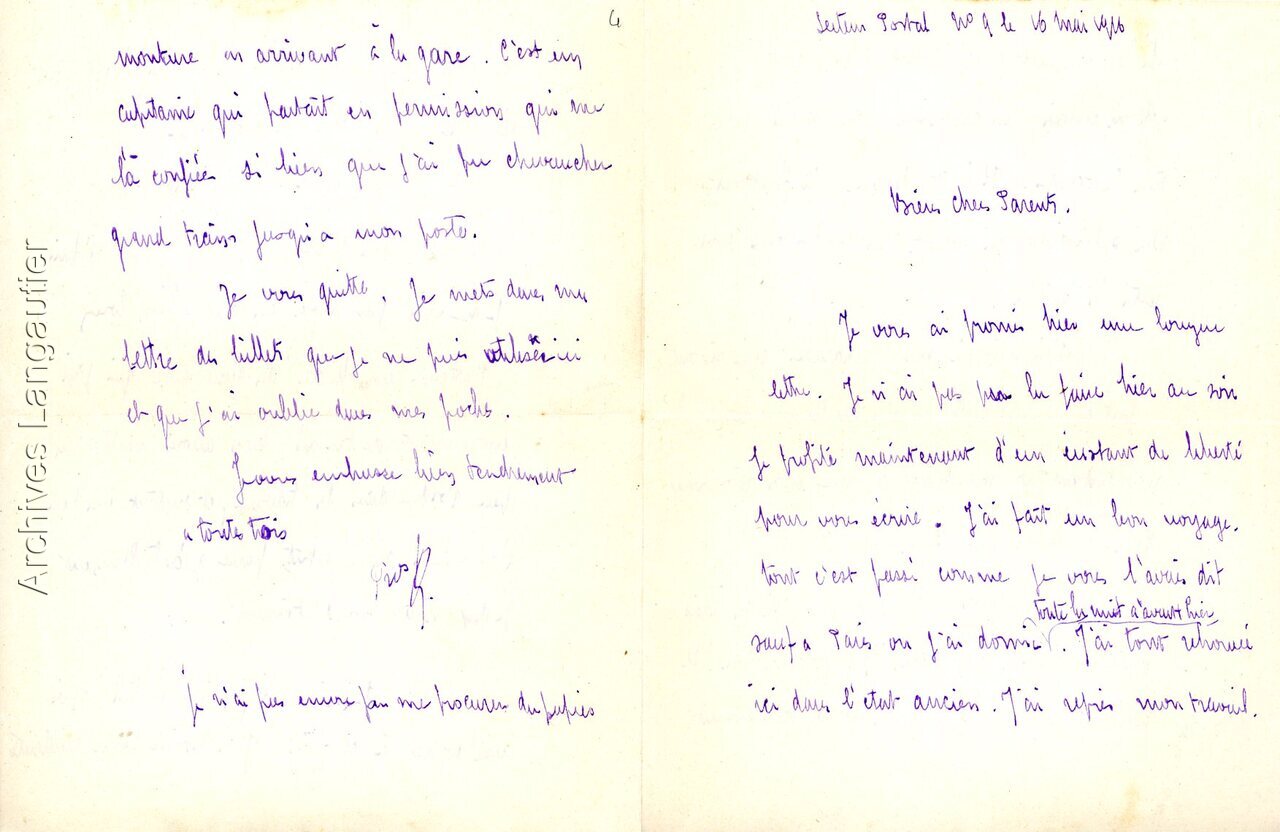 Secteur Postal No 9 le 16 mai 1916
Biens chers Parents.
Je vous ai promis hier une longue
lettre. Je n'ai pas pu la faire hier au soir
Je profite maintenant d'un instant de liberté
pour vous écrire. J'ai fait un bon voyage.
tout c'est passé comme je vous l'avais dit
toute la nuit d'avant hier
sauf a Paris ou j'ai dormi. J'ai tout retrouvé
ici dans l'etat ancien. J'ai repris mon travail.
4
monture en arrivant à la gare. C'est un
capitaine qui partait en permission qui me
l'à confiée si bien que j'ai pu chevaucher
grand train jusqu'a mon poste.
Je vous quitte. Je mets dans ma
lettre des billets que je ne puis utiliser ici
et que j'ai oublié dans mes poches.
J vous embrasse bien tendrement
a toutes trois
je n'ai pas encore pu me procurer du papier
Archives Langautier